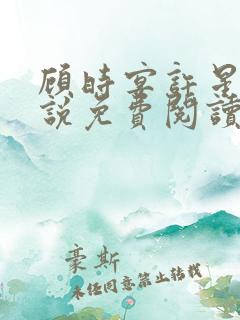 顾时宴許星
說免費閱讀
豪斯
未经同意禁止转载